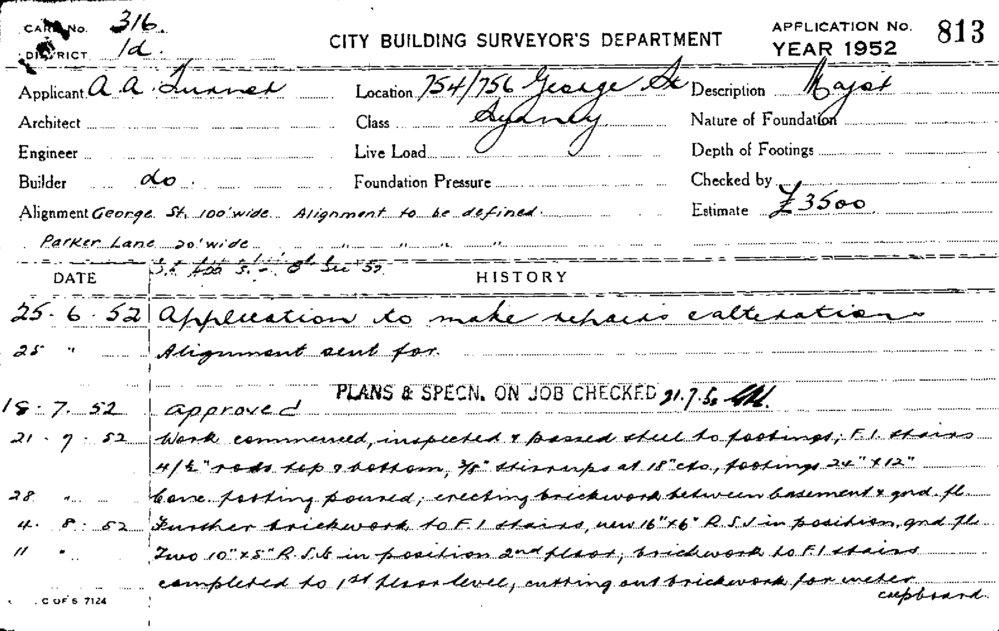 CARD No. 316.
DISTRICT 1d.
CITY BUILDING SURVEYOR'S DEPARTMENT
APPLICATION No. 813
YEAR 1952
Applicant A. A. Turner Location 754/756 George St Description Major
Architect Class Sydney Nature of Foundation
Engineer Live Load Depth of Footings
Builder do. Foundation Pressure Checked by
Alignment George St, 100' wide Alignment to be defined. Estimate £3500
Parker Lane 20' wide " " " "
DATE HISTORY
25·6·52 Application to make repairs & alterations
25 " Alignment sent for.
PLANS & SPECN. ON JOB CHECKED 21.7.52
18·7·52 approved
21·7·52 Work commenced, inspected & passed steel to footings; F.I. stairs
4/½" rods top & bottom, 3/8" stirrups at 18" cto., footings 24" x 12"
28 " Conc. footing poured; erecting brickwork between basement & gnd. fl.
4·8·52 Further brickwork to F.I stairs, new 16" x 6" R.S.J in position, gnd fl.
11 " Two 10" x 5" R.S.Js in position 2nd floor; brickwork to F.I stairs
completed to 1st floor level, cutting out brickwork for meter
cupboard.
C OF S 7124